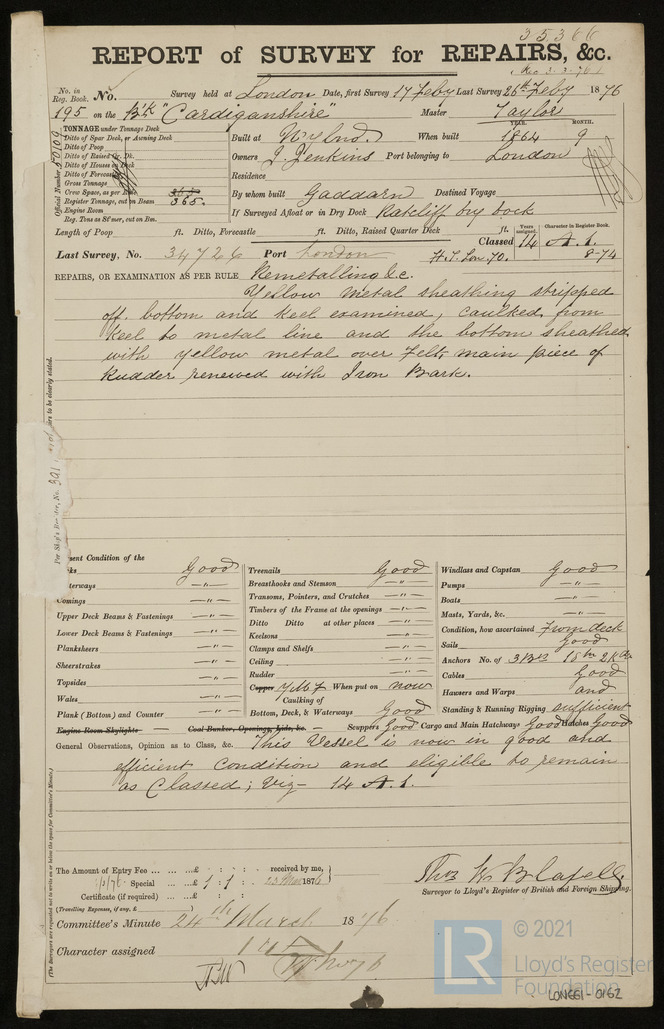 35366
REPORT of SURVEY for REPAIRS, &c.
No. in Reg. Book. No. Survey held at London Date, first Survey 17 Feby Last Survey 26th Feby 1876
195 on the Bk "Cardiganshire" Master Taylor
TONNAGE under Tonnage Deck
Ditto of Spar Deck, or Awning Deck
Ditto of Poop
Ditto of Raised Qr. Dk.
Ditto of Houses on Deck
Ditto of Forecastle
Gross Tonnage
Crew Space, as per Rule
Register Tonnage, cut on Beam 365.
Engine Room
Reg. Tons as St'mer, cut on Bm.
Official Number 50109
Built at Nylnd. When built YEAR. 1864 MONTH. 9
Owners J. Jenkins Port belonging to London
Residence
By whom built Gaddarn Destined Voyage
If Surveyed Afloat or in Dry Dock Ratcliff Dry Dock
Length of Poop ft. Ditto, Forecastle ft. Ditto, Raised Quarter Deck ft.
Classed Years assigned. 14 Character in Register Book. A.1.
8-74
Last Survey, No. 34726 Port London H.T. Lon. 70.
REPAIRS, OR EXAMINATION AS PER RULE Remetalling &c.
Yellow Metal sheathing stripped
off. bottom and keel examined, caulked from
keel to metal line and the bottom sheathed
with yellow metal over Felt, main piece of
Rudder renewed with Iron Bark.
irs to be clearly stated.
Present Condition of the
Good
Waterways —"—
Comings —"—
Upper Deck Beams & Fastenings —"—
Lower Deck Beams & Fastenings —"—
Planksheers —"—
Sheerstrakes —"—
Topsides —"—
Wales —"—
Plank (Bottom) and Counter —"—
Treenails Good
Breasthooks and Stemson —"—
Transoms, Pointers, and Crutches —"—
Timbers of the Frame at the openings —"—
Ditto Ditto at other places —"—
Keelsons —"—
Clamps and Shelfs —"—
Ceiling —"—
Rudder —"—
Copper Y.M.F. When put on now
Caulking of
Bottom, Deck, & Waterways Good
Windlass and Capstan Good
Pumps —"—
Boats —"—
Masts, Yards, &c. —"—
Condition, how ascertained From deck
Sails Good
Anchors No. of 3 Brs 1 Sm 2 Kds
Cables Good
Hawsers and Warps and
Standing & Running Rigging sufficient
Engine Room Skylights — Coal Bunker, Openings, Lids, &c. — Scuppers Good Cargo and Main Hatchways Good Hatches Good
General Observations, Opinion as to Class, &c. This Vessel is now in good and
efficient condition and eligible to remain
as Classed; viz- 14 A.1.
(The Surveyors are requested not to write on or below the space for Committee's Minute.)
The Amount of Entry Fee ... £ : : received by me,
Special ... £ 1 : 1 : 23 Mar 1876
Certificate (if required) ... £ : :
(Travelling Expenses, if any, £ )
Surveyor to Lloyd's Register of British and Foreign Shipping.
Committee's Minute 24th March 1876
Character assigned
LR
© 2021
Lloyd's Register
Foundation
LON661-0162